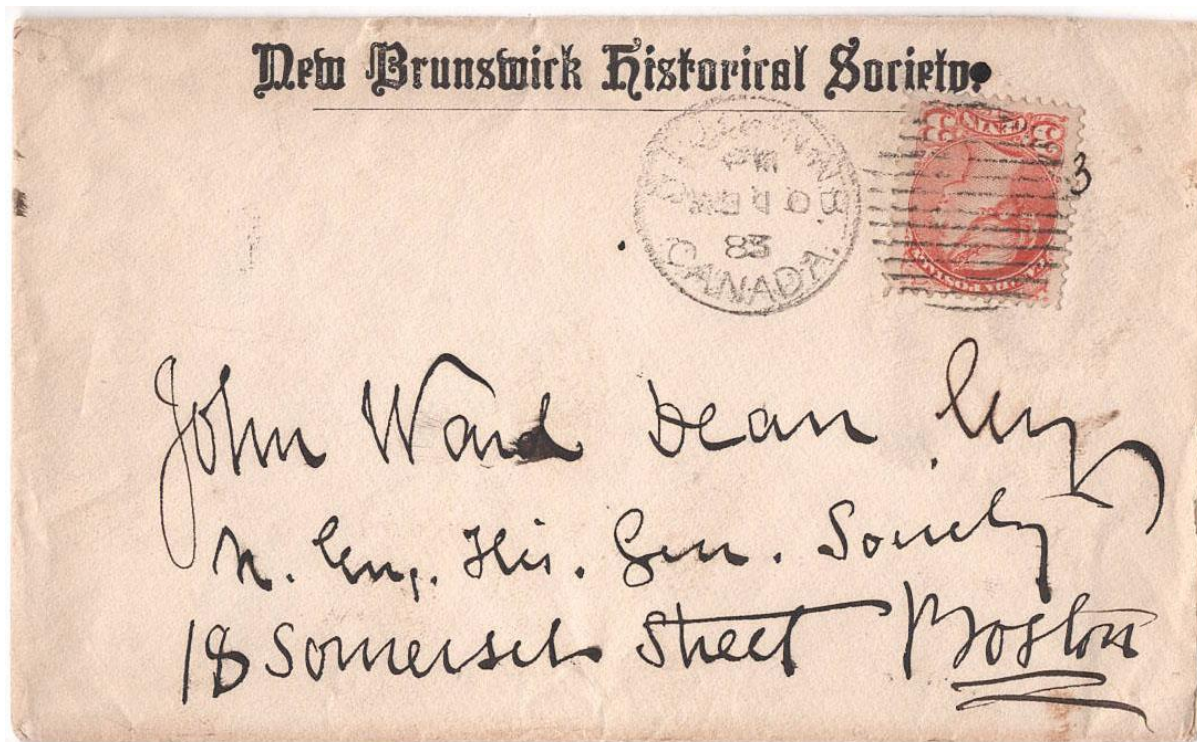 New Brunswick Historical Society.
PM
83
CANADA.
3 CENTS 3
3
John Ward Dean Esq
N. Eng. His. Gen. Society
18 Somerset Street Boston